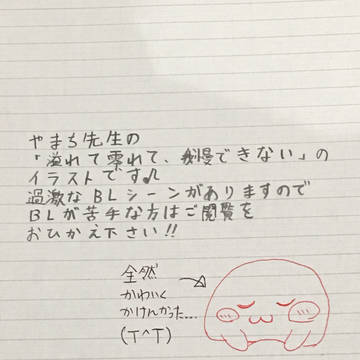 やまち先生の
「溢れて零れて、我慢できない」の
イラストです♪
過激なBLシーンがありますので
BLが苦手な方はご閲覧を
おひかえ下さい!!
全然
かわいく
かけんかった...
(T^T)